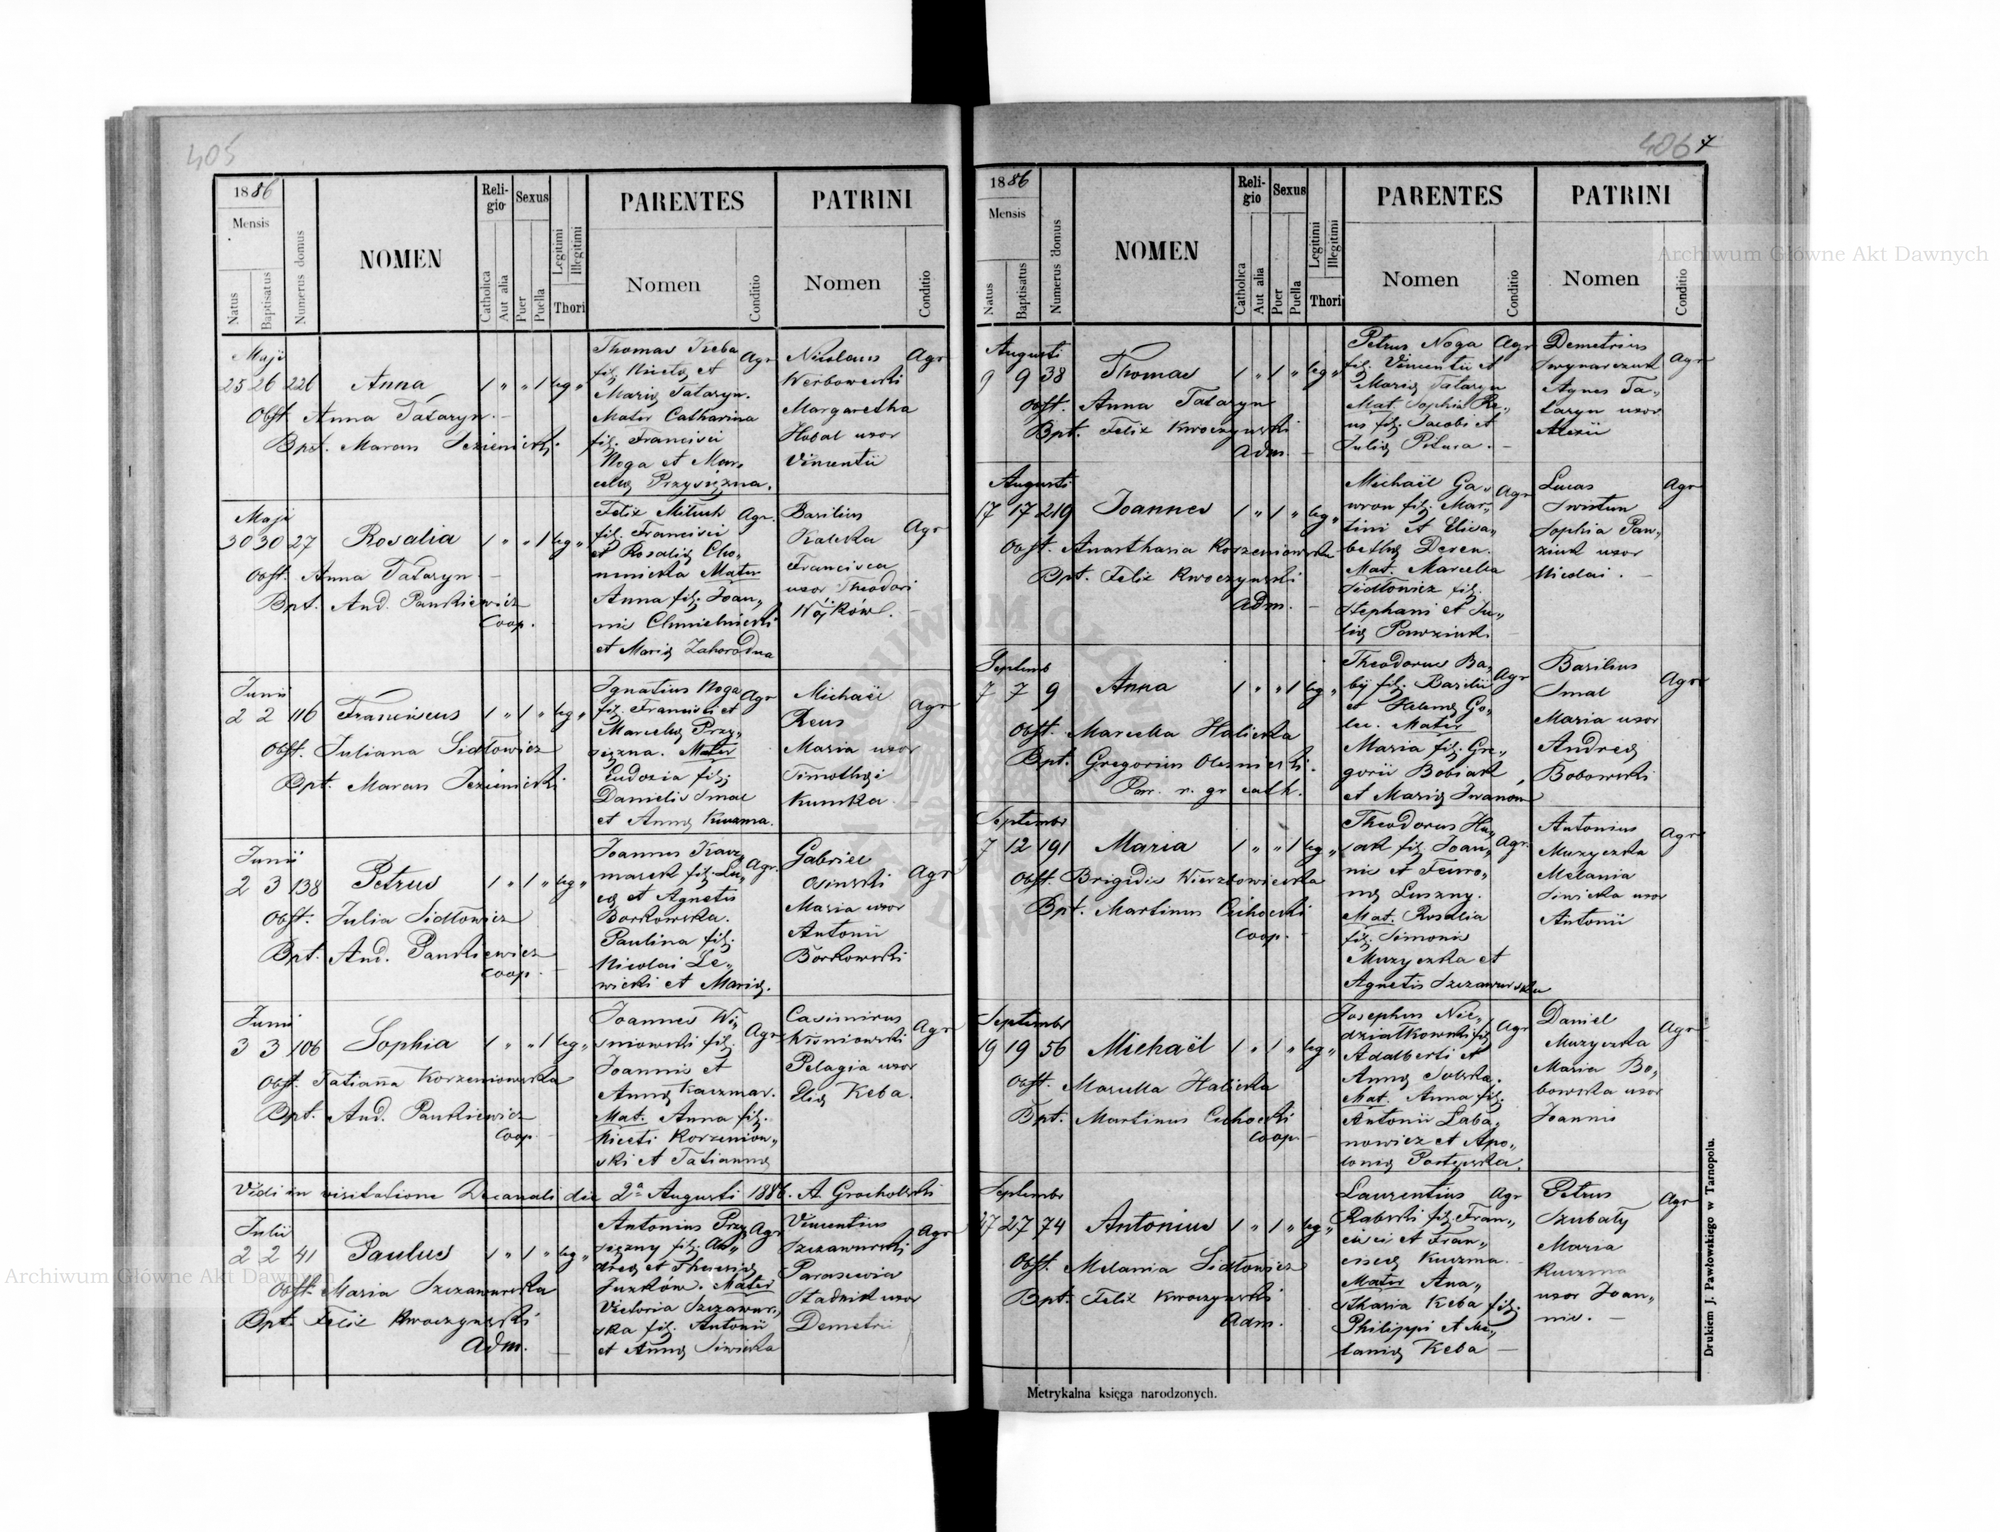 405
1886
Mensis
Natus
Baptisatus
Numerus domus
NOMEN
Religio
Catholica
Aut alia
Sexus
Puer
Puella
Legitimi
Illegitimi
Thori
PARENTES
Nomen
Conditio
PATRINI
Nomen
Conditio
Maji
25 26 226 Anna 1 " " 1 leg "
Obst. Anna Tataryn. -
Bpt. Marcus
Thomas Keba Agr
fil. Nicetę et
Marię Tataryn.
Mater Catharina
fil. Francisci
Noga et Mar-
cellę Przysiężna.
Nicolaus Agr
Werbowecki
Margaretha
uxor
Vincentii
Maji
30 30 27 Rosalia 1 " " 1 leg "
Obst. Anna Tataryn -
Bpt. And. Pankiewicz
Coop.
Felix Mituch Agr.
fil. Francisci
et Rosalię Cho-
minicka Mater
Anna fil. Joan-
nis Chmielnicki
et Marię Zahorodna
Basilius Agr
Francisca
uxor Theodori
Wójków. -
Junii
2 2 116 Franciscus 1 " 1 " leg "
Obst. Juliana Sidłowicz
Bpt. Marcus
Ignatius Noga Agr
fil. Francisci et
Marcellę Przy-
siężna. Mater
Eudoxia fil.
Danielis Smal
et Annę Kuczma.
Michaël Agr
Reus
Maria uxor
Timothęi
Kumka -
Junii
2 3 138 Petrus 1 " 1 " leg "
Obst. Julia Sidłowicz
Bpt. And. Pankiewicz
Coop. -
Joannes Kacz- Agr.
marek fil. Lu-
cę et Agnetis
Borkowska.
Paulina fil.
Nicolai Le-
wicki et Marię.
Gabriel Agr
Osinski
Maria uxor
Antonii
Borkowski
Junii
3 3 106 Sophia 1 " " 1 leg "
Obst. Tatianna Korzeniowska
Bpt. And. Pankiewicz
Coop. -
Joannes Wi- Agr
sniowski fil.
Joannis et
Annę Kaczmar.
Mat. Anna fil.
Niceti Korzeniow-
ski et Tatiannę
Casimirus Agr
Wiśniowski
Pelagia uxor
Elię Keba.
Vidi in visitatione Decanali die 2ª Augusti 1886. A. Grocholski
Julii
2 2 41 Paulus 1 " 1 " leg "
Obst. Maria Szczawurska
Bpt. Felix Kwoczynski
Adm. -
Antonius Przy- Agr
siężny fil. An-
dreę et Theresię
Junków. Mater
Victoria Szczawur-
ska fil. Antonii
et Annę Siwicka
Vincentius Agr
Szczawurski
Parascevia
Stadnik uxor
Demetrii
406 7
1886
Mensis
Natus
Baptisatus
Numerus domus
NOMEN
Religio
Catholica
Aut alia
Sexus
Puer
Puella
Legitimi
Illegitimi
Thori
PARENTES
Nomen
Conditio
PATRINI
Nomen
Conditio
Augusti
9 9 38 Thomas 1 " 1 " leg "
Obst. Anna Tataryn
Bpt. Felix Kwoczynski
Adm. -
Petrus Noga Agr
fil. Vincentii et
Marię Tataryn
Mat. Sophia Re-
us fil. Jacobi et
Julię Pitura. -
Demetrius Agr
Agnes Ta-
taryn uxor
Alexii
Augusti
17 17 219 Joannes 1 " 1 " leg "
Obst. Anasthasia Korzeniowska
Bpt. Felix Kwoczynski
Adm. -
Michaël Ga- Agr
wron fil. Mar-
tini et Elisa-
bethę Deren.
Mat. Marcella
Sidłowicz fil.
Stephani et Ju-
lię Pawziuk. -
Lucas Agr
Swistun
Sophia Paw-
ziuk uxor
Nicolai. -
Septemb
7 7 9 Anna 1 " " 1 leg "
Obst. Marcella Halicka
Bpt. Gregorius Olesnicki.
Par. r. gr. cath.
Theodorus Ba- Agr
bij fil. Basilii
et Helenę Go-
lec. Mater
Maria fil. Gre-
gorii Bobiak
et Marię Iwanów
Basilius Agr
Smal
Maria uxor
Andreę
Bobowski
Septembr
7 12 191 Maria 1 " " 1 leg "
Obst. Brigidis Wierzbowiecka
Bpt. Martinus Cichocki
Coop. -
Theodorus Hu- Agr.
sak fil. Joan-
nis et Feuro-
nię Luszny.
Mat. Rosalia
fil. Simonis
Muzyczka et
Agnetis Szczawurska
Antonius Agr
Muzyczka
Melania
Siwicka uxor
Antonii
Septembr
19 19 56 Michaël 1 " 1 " leg "
Obst. Marcella Halicka
Bpt. Martinus Cichocki
Coop. -
Josephus Nie- Agr
działkowski fil.
Adalberti et
Annę Sobska.
Mat. Anna fil.
Antonii Laba-
nowicz et Apo-
lonię Postępska.
Daniel Agr
Muzyczka
Maria Bo-
bowska uxor
Joannis
Septembr
27 27 74 Antonius 1 " 1 " leg "
Obst. Melania Sidłowicz
Bpt. Felix Kwoczynski
Adm.
Laurentius Agr
Rabski fil. Fran-
cisci et Fran-
ciscę Kuczma.
Mater Ana-
sthasia Keba fil.
Philippi et Me-
lanię Keba -
Petrus Agr
Szubały
Maria
Kuczma
uxor Joan-
nis. -
Metrykalna księga narodzonych.
Drukiem J. Pawłowskiego w Tarnopolu.
Archiwum Główne Akt Dawnych
Archiwum Główne Akt Dawnych